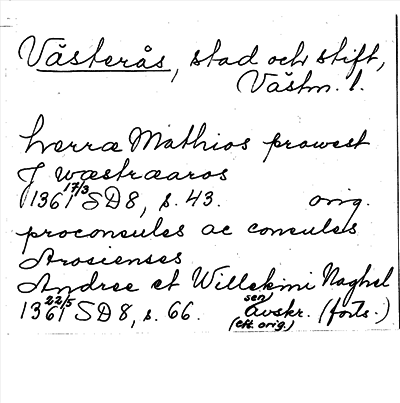 Västerås, stad och stift,
Västm. l.
herra Mathios prowest
J wæstræaros
1361 17/3 SD8, s. 43. orig.
proconsules ac consules
Arosienses
Andree et Willekini Naghel
1361 22/5 SD8, s. 66. sen avskr. (forts.)
(eft. orig.)